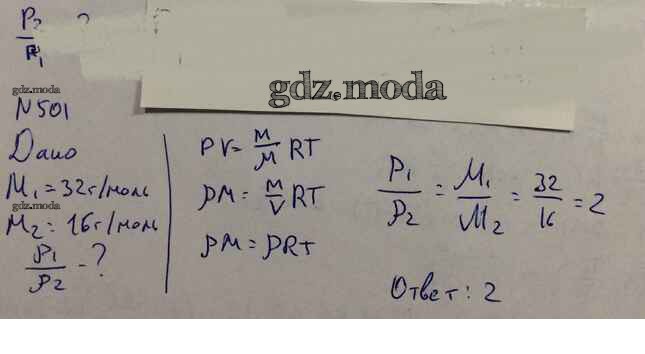 P₂/P₁ - ?
gdz.moda
gdz.moda
N 501
Дано
M₁ = 32 г/моль
gdz.moda
M₂ = 16 г/моль
ρ₁/ρ₂ - ?
PV = m/M RT
PM = m/V RT
PM = ρRT
ρ₁/ρ₂ = M₁/M₂ = 32/16 = 2
Ответ: 2